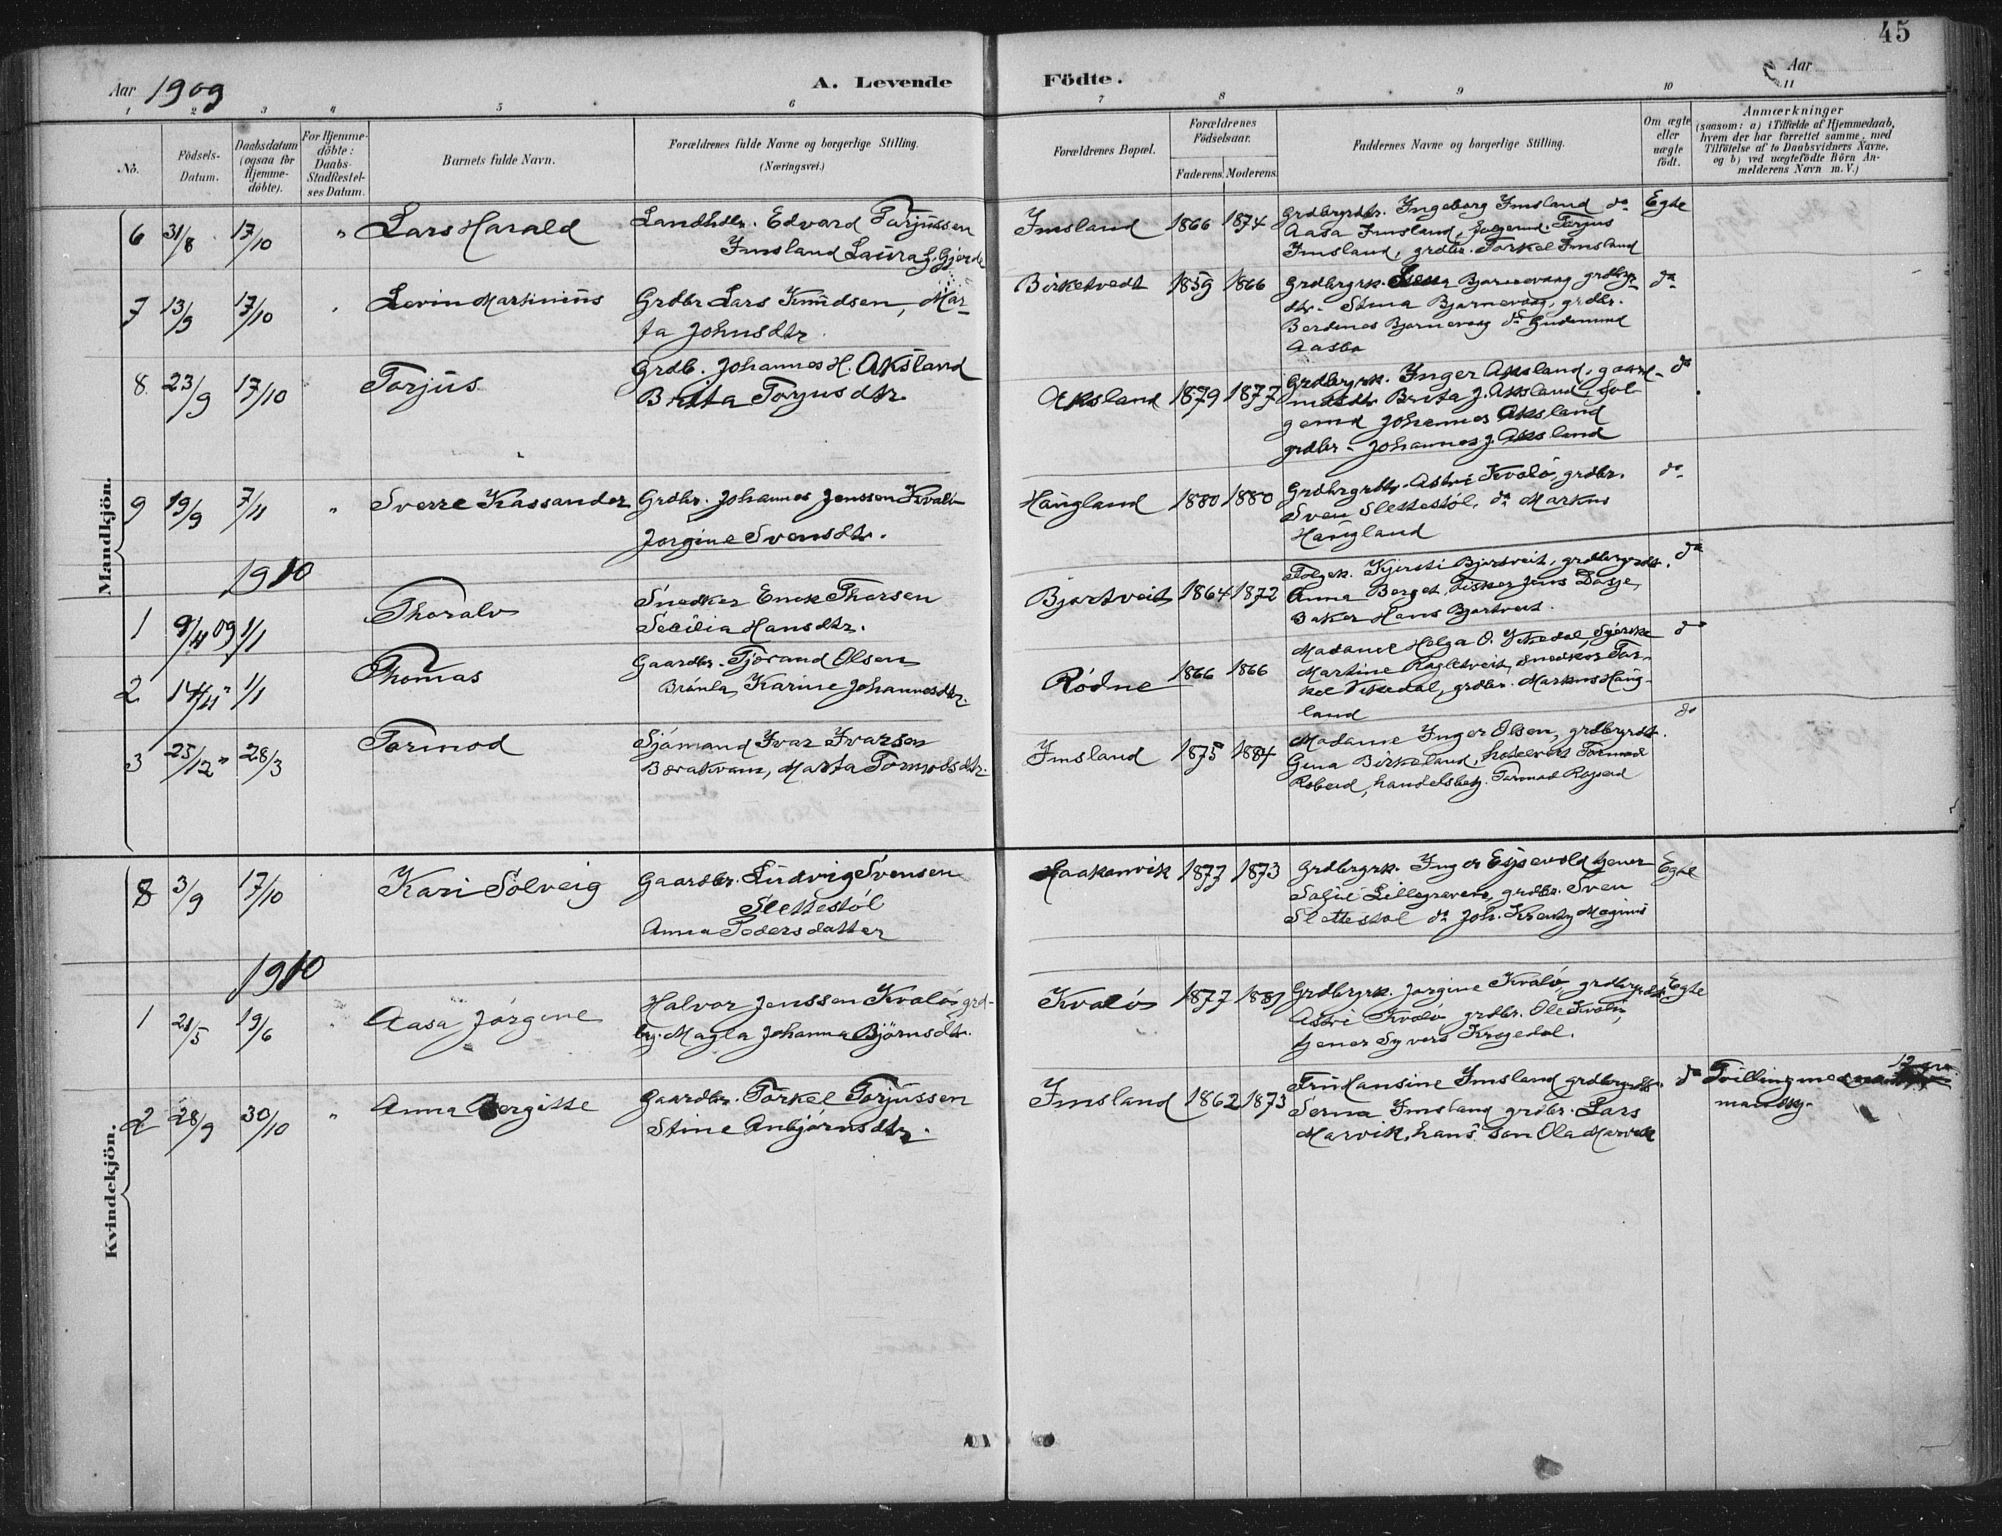 45
Aar 1909
A. Levende Födte.
Aar
1 2 3 4 5 6 7 8 9 10 11
No.
Födsels-Datum.
Daabsdatum (ogsaa for Hjemme-döbte).
For Hjemme-döbte: Daabs-Stadfestel-ses Datum.
Barnets fulde Navn.
Forældrenes fulde Navne og borgerlige Stilling. (Næringsvei.)
Forældrenes Bopæl.
Forældrenes Födselsaar.
Faderens. Moderens.
Faddernes Navne og borgerlige Stilling.
Om ægte eller uægte födt.
Anmærkninger
(saasom: a) i Tilfælde af Hjemmedaab,
hvem der har forrettet samme, med
Tilföielse af to Daabsvidners Navne,
og b) ved uægtefödte Börn An-
melderens Navn m. V.)
Mandkjön.
6 31/8 17/10 " Lars Harald
Landhdlr. Edvard Torjussen
Imsland Laura L. Gjerde
Imsland 1866 1874
Grdbrgrdtr. Ingeborg Imsland do
Aasa Imsland, Torjus
Imsland, grdbr. Torkel Imsland
Egte
7 13/9 17/10 Levin Martinius
Grdbr Lars Knudsen, Mar-
ta Johnsdtr.
Birketvedt 1859 1866
Grdbrgrk. Bjornevaag grdbrgr-
dtr. Stina Bjornevaag, grdbr.
Berdines Bjornevaag do Gudmund
Aasbo
do
8. 23/9 17/10 Torjus
Grdb. Johannes H. Aksland
Brita Torjusdtr.
Aksland 1879 1877
Grdbrgrk. Inger Aksland, gaard-
Brita J. Aksland,
Johannes Aksland
grdbr. Johannes J. Aksland
do
9 19/9 7/11 " Sverre Kassander
Grdbr. Johannes Jenssen Kvalö
Jorgine Svensdtr.
Haugland 1880 1880
Astri Kvalö, grdbr.
Sven Slettestöl, do Markus
Haugland
do
1910
1 9/11 09 1/1 Thoralv
Snedker Enok Thorsen
Secilia Hansdtr.
Bjortveit 1864 1872
Kjersti Bjortveit, grdbrgrdt.
Anna Berget, Fisker Jens
Baker Hans Bjortveit.
do
2 14/11 " 1/1 Thomas
Gaardbr. Tjörand Olsen
Karine Johannesdtr.
Rödne 1866 1866
Madame Helga O. Vikedal,
Martine snedker Tor-
kel Vikedal, grdbr. Markus Haug-
land
do
3 25/12 " 28/3 Tormod
Sjömand Ivar Ivarsen
Marta Tormodsdtr.
Imsland 1875 1884
Madame Inger Olsen, grdbrgrdt.
Gina Birkeland, Tormod
handelsbetj. Tormod
do
Kvindekjön.
8 3/9 17/10 Kari Solveig
Gaardbr. Ludvig Svensen
Slettestöl
Anna Pedersdatter
Haakonvik 1877 1873
Grdbrgrk. Inger tjener
Lillegraven, grdbr. Sven
Slettestöl do Joh. Magnus
Egte
1910
1 21/5 19/6 " Aasa Jörgine
Halvor Jenssen Kvalö grd-
br. Magla Johanna Björnsdtr.
Kvalö 1877 1881
Grdbrgrk. Jorgine Kvalö, grdbrgrdtr.
Astri Kvalö grdbr. Ole Kvalö,
tjener Syvert Krogedal.
Egte
2 28/9 30/10 " Anna Bergitte
Gaardbr. Torkel Torjussen
Stine Anbjörnsdtr.
Imsland 1862 1873
Fru Hansine Imsland grdbrgrdtr.
Serina Imsland grdbr. Lars
Marvik, hans sön Ola Marvik
do
Tvilling med
mandkj.